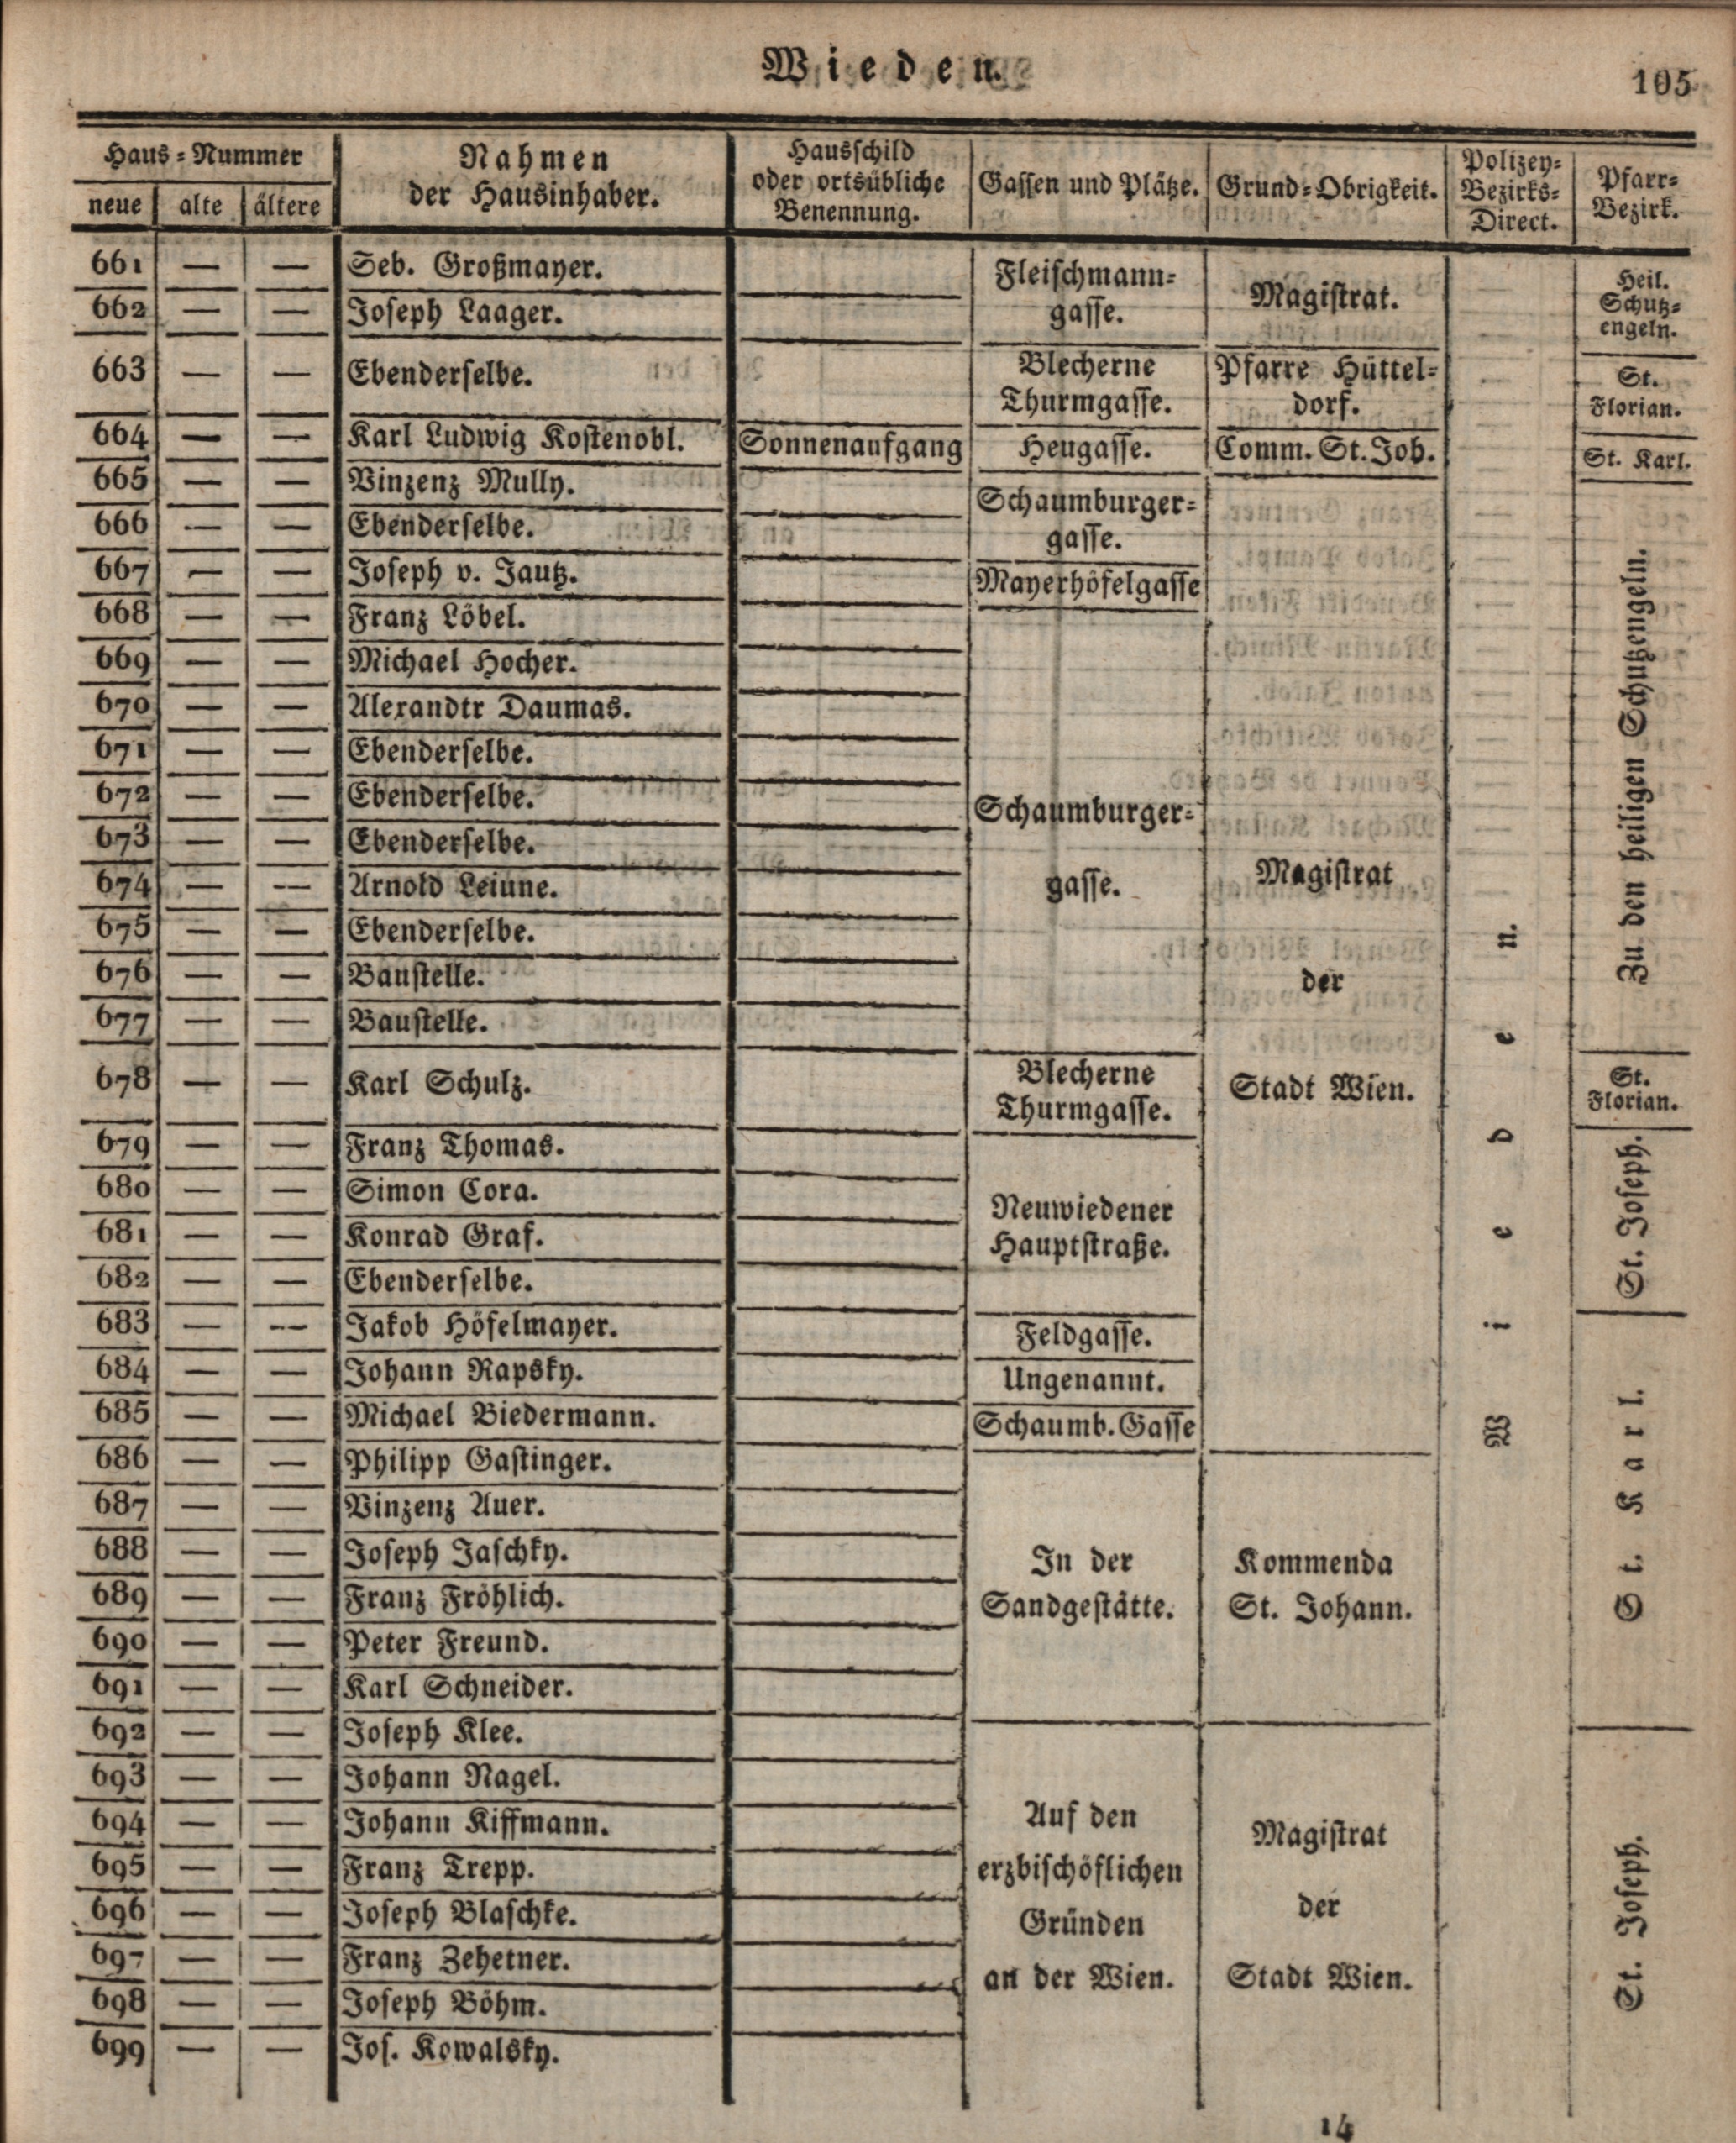 Wieden.
105
Haus-Nummer
neue alte ältere
Nahmen
der Hausinhaber.
Hausschild
oder ortsübliche
Benennung.
Gassen und Plätze.
Grund-Obrigkeit.
Polizey-
Bezirks-
Direct.
Pfarr-
Bezirk.
661 — — Seb. Großmayer.
662 — — Joseph Laager.
Fleischmann-
gasse.
Magistrat.
Heil.
Schutz-
engeln.
663 — — Ebenderselbe.
Blecherne
Thurmgasse.
Pfarre Hüttel-
dorf.
St.
Florian.
664 — — Karl Ludwig Kostenobl. Sonnenaufgang Heugasse. Comm. St. Joh. St. Karl.
665 — — Vinzenz Mully.
666 — — Ebenderselbe.
Schaumburger-
gasse.
667 — — Joseph v. Jautz. Mayerhöfelgasse
668 — — Franz Löbel.
669 — — Michael Hocher.
670 — — Alexandtr Daumas.
671 — — Ebenderselbe.
672 — — Ebenderselbe.
673 — — Ebenderselbe.
674 — — Arnold Leiune.
675 — — Ebenderselbe.
676 — — Baustelle.
677 — — Baustelle.
Schaumburger-
gasse.
Zu den heiligen Schutzengeln.
678 — — Karl Schulz.
Blecherne
Thurmgasse.
St.
Florian.
679 — — Franz Thomas.
680 — — Simon Cora.
681 — — Konrad Graf.
682 — — Ebenderselbe.
Neuwiedener
Hauptstraße.
St. Joseph.
683 — — Jakob Höfelmayer. Feldgasse.
684 — — Johann Rapsky. Ungenannt.
685 — — Michael Biedermann. Schaumb. Gasse
Magistrat
der
Stadt Wien.
686 — — Philipp Gastinger.
687 — — Vinzenz Auer.
688 — — Joseph Jaschky.
689 — — Franz Fröhlich.
690 — — Peter Freund.
691 — — Karl Schneider.
In der
Sandgestätte.
Kommenda
St. Johann.
St. Karl.
692 — — Joseph Klee.
693 — — Johann Nagel.
694 — — Johann Kiffmann.
695 — — Franz Trepp.
696 — — Joseph Blaschke.
697 — — Franz Zehetner.
698 — — Joseph Böhm.
699 — — Jos. Kowalsky.
Auf den
erzbischöflichen
Gründen
an der Wien.
Magistrat
der
Stadt Wien.
Wieden.
St. Joseph.
14